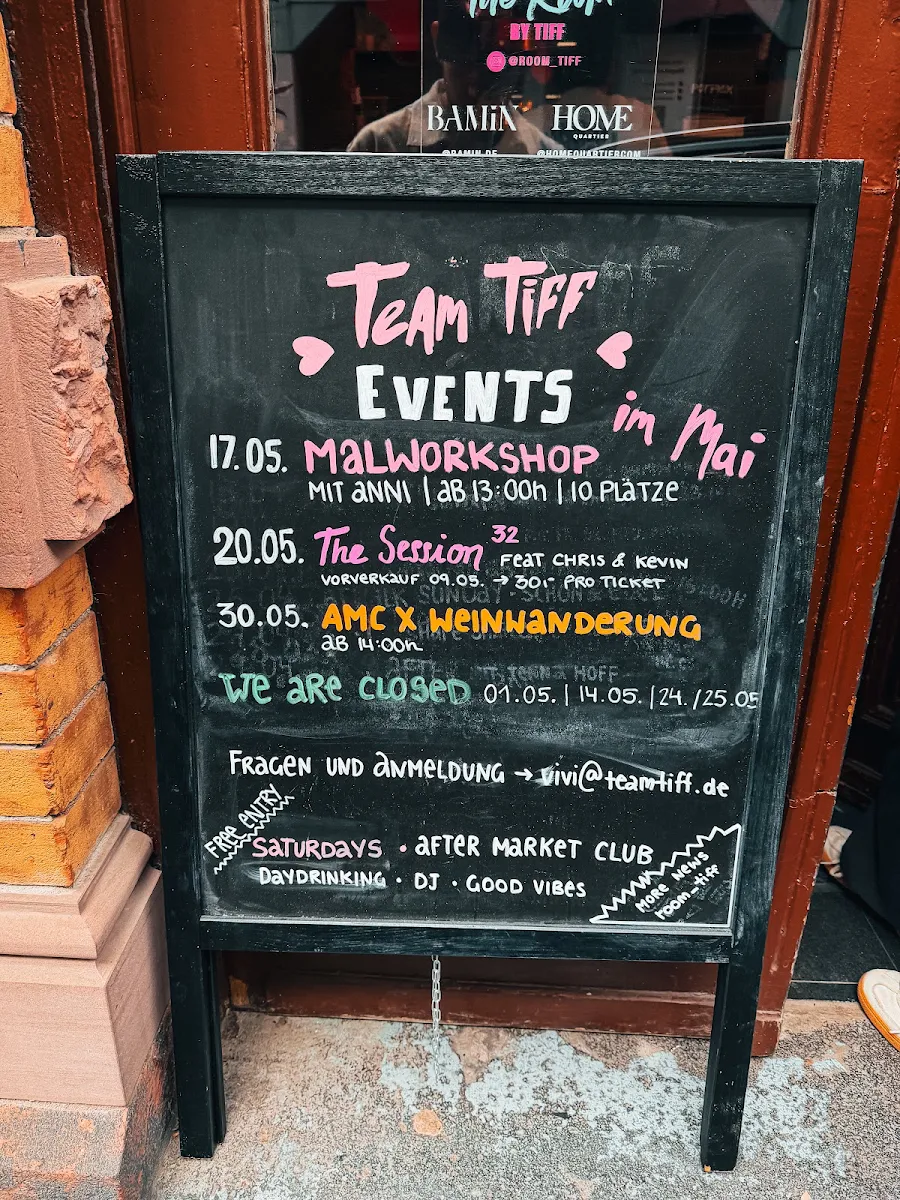 The Room
BY TIFF
@ROOM_TIFF
BAMIN HOME
QUARTIER
@BAMIN.DE @HOMEQUARTIERCOM
TEAM TIFF
EVENTS
im Mai
17.05. MALWORKSHOP
MIT ANNI | AB 13:00h | 10 PLÄTZE
20.05. The Session 32 FEAT CHRIS & KEVIN
VORVERKAUF 09.05. → 30.- PRO TICKET
30.05. AMC X WEINWANDERUNG
AB 14:00h
WE ARE CLOSED 01.05. | 14.05. | 24. / 25.05
FRAGEN UND ANMELDUNG → vivi@teamtiff.de
FREE ENTRY
SATURDAYS • AFTER MARKET CLUB
DAYDRINKING • DJ • GOOD VIBES
MORE NEWS
room_tiff